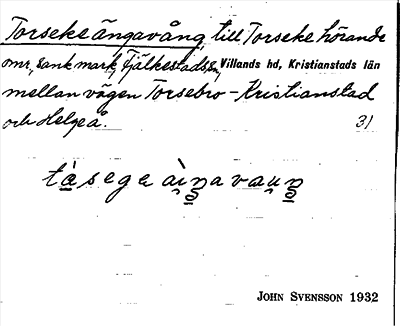 Torseke ängavång till Torseke hörande
omr, sank mark, Fjälkestads sn, Villands hd, Kristianstads län
mellan vägen Torsebro - Kristianstad
och Helgeå. 31
JOHN SVENSSON 1932